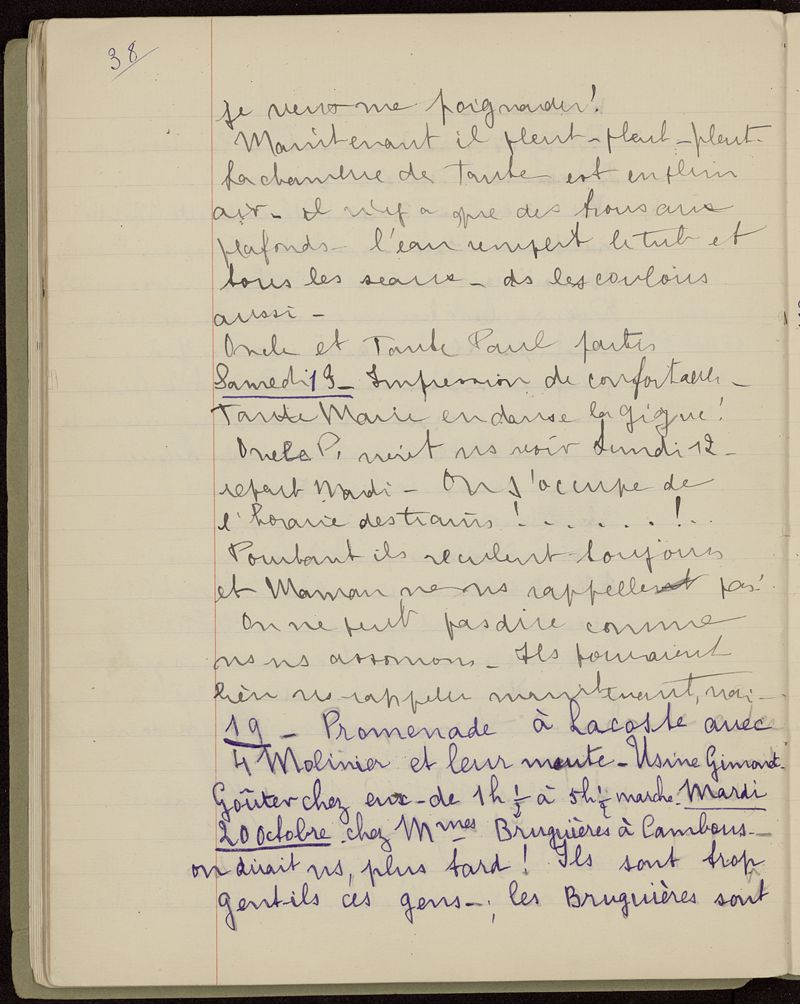 38
je veux me poignarder!
Maintenant il pleut - pleut - pleut.
La chambre de Tante est en plein
air - il n'y a que des trous aux
plafonds - l'eau remplit le tub et
tous les seaux - ds les couloirs
aussi -
Oncle et Tante Paul partis
Samedi 13 - Impression de confortable -
Tante Marie en danse la gigue!
Oncle P. vient ns voir Lundi 12 -
repart Mardi - On s'occupe de
l'horaire des trains! . . . . . . ! . .
Pourtant ils reculent toujours
et Maman ne ns rappelle pas!
On ne peut pas dire comme
ns ns assomons - Ils pourraient
bien ns rappeler maintenant,
19 - Promenade à Lacoste avec
4 Molinier et leur meute - Usine
Goûter chez eux - de 1h ½ à 5h ½ marche. Mardi
20 Octobre chez Mmes Bruguières à Cambous -
on dirait ns, plus tard! Ils sont trop
gentils ces gens - ; les Bruguières sont